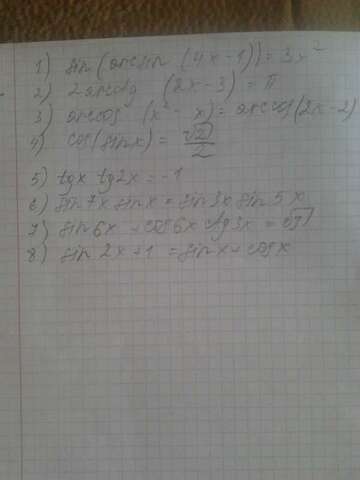 1) sin(arcsin (4x-1)) = 3x²
2) 2arcctg (2x-3) = π
3) arccos (x² - x) = arccos(2x-2)
4) cos(sin x) = √2/2
5) tgx tg2x = -1
6) sin7x sinx = sin3x sin5x
7) sin6x - cos6x ctg3x = √3
8) sin2x+1 = sinx+cosx